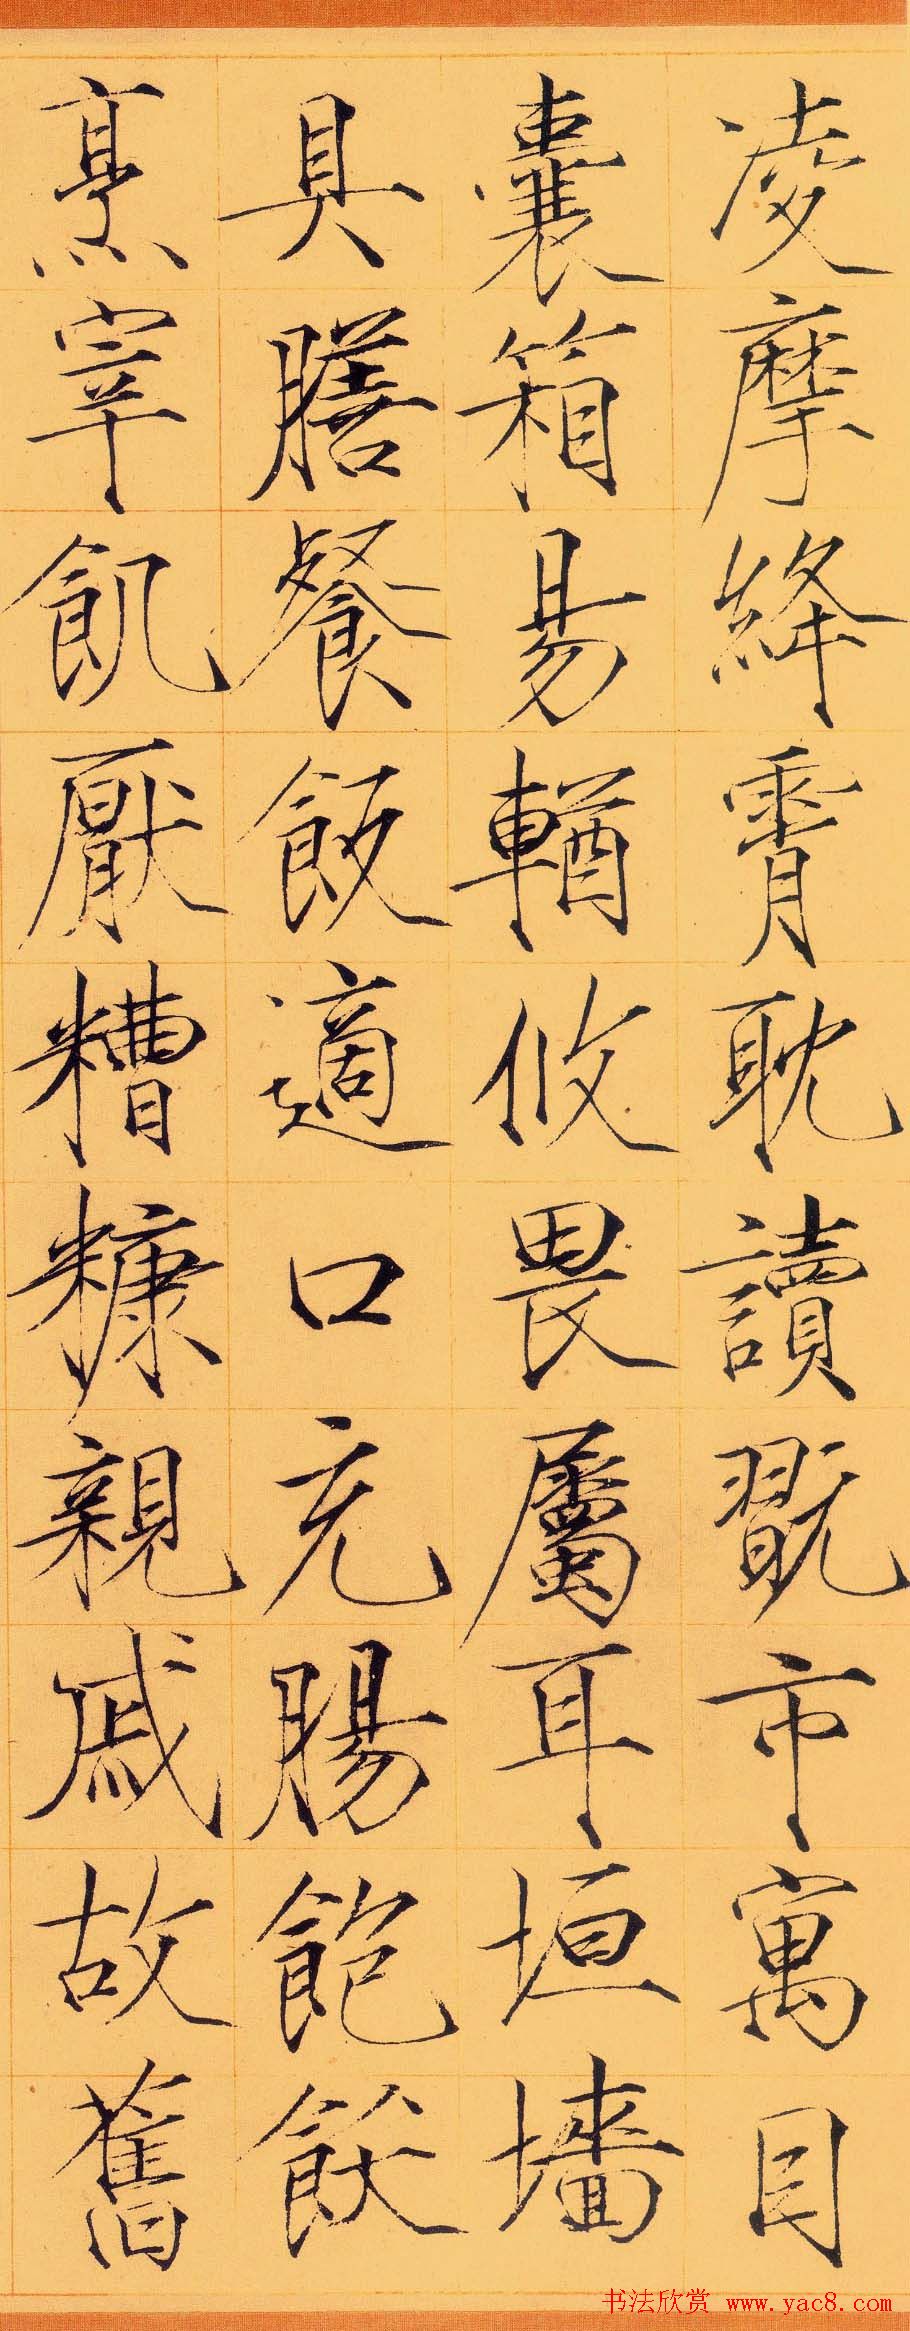 凌摩絳霄耽讀翫市寓目
囊箱易輶攸畏屬耳垣墻
具膳餐飯適口充腸飽飫
烹宰飢厭糟糠親戚故舊
书法欣赏 www.yac8.com